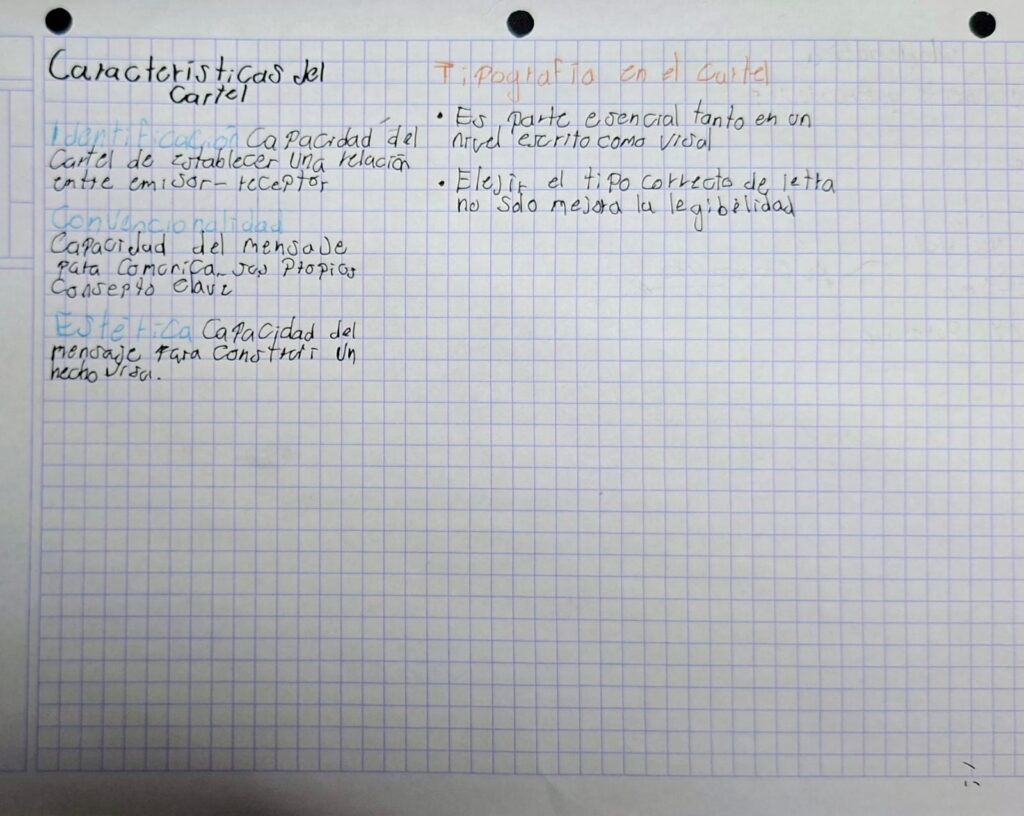 Caracteristicas del
Cartel
Identificación Capacidad del
Cartel de establecer una relación
entre emisor-receptor
Convencionalidad
Capacidad del mensaje
para comunica sus propios
Consepto clave
Estética Capacidad del
mensaje para construir un
hecho visa.
Tipografía en el Cartel
• Es parte esencial tanto en un
nivel escrito como visal
• Elejir el tipo correcto de letra
no solo mejora la legibilidad